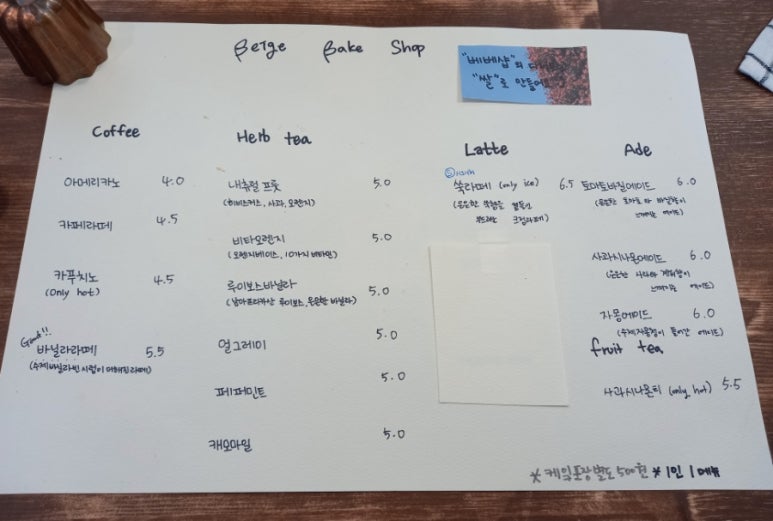 Beige Bake Shop
"베베샵"의
"쌀"로 만들어
Coffee
아메리카노 4.0
카페라떼 4.5
카푸치노 4.5
(Only hot)
Good!!
바닐라라떼 5.5
(수제바닐라빈시럽이 더해진라떼)
Herb tea
내츄럴 프룻 5.0
(히비스커스, 사과, 오렌지)
비타오렌지 5.0
(오렌지베이스, 10가지 비타민)
루이보스바닐라 5.0
(남아프리카산 루이보스, 은은한 바닐라)
얼그레이 5.0
페퍼민트 5.0
캐모마일 5.0
Latte
쑥라떼 (only ice) 6.5
(은은한 쑥향을
크림라떼)
Ade
토마토바질에이드 6.0
(은은한 토마토와 바질향이
느껴지는 에이드)
사과시나몬에이드 6.0
(은은한 사과와 계피향이
느껴지는 에이드)
자몽에이드 6.0
(수제자몽청이 들어간 에이드)
fruit tea
사과시나몬티 (only hot) 5.5
*케잌포장별도 500원 * 1인 1메뉴